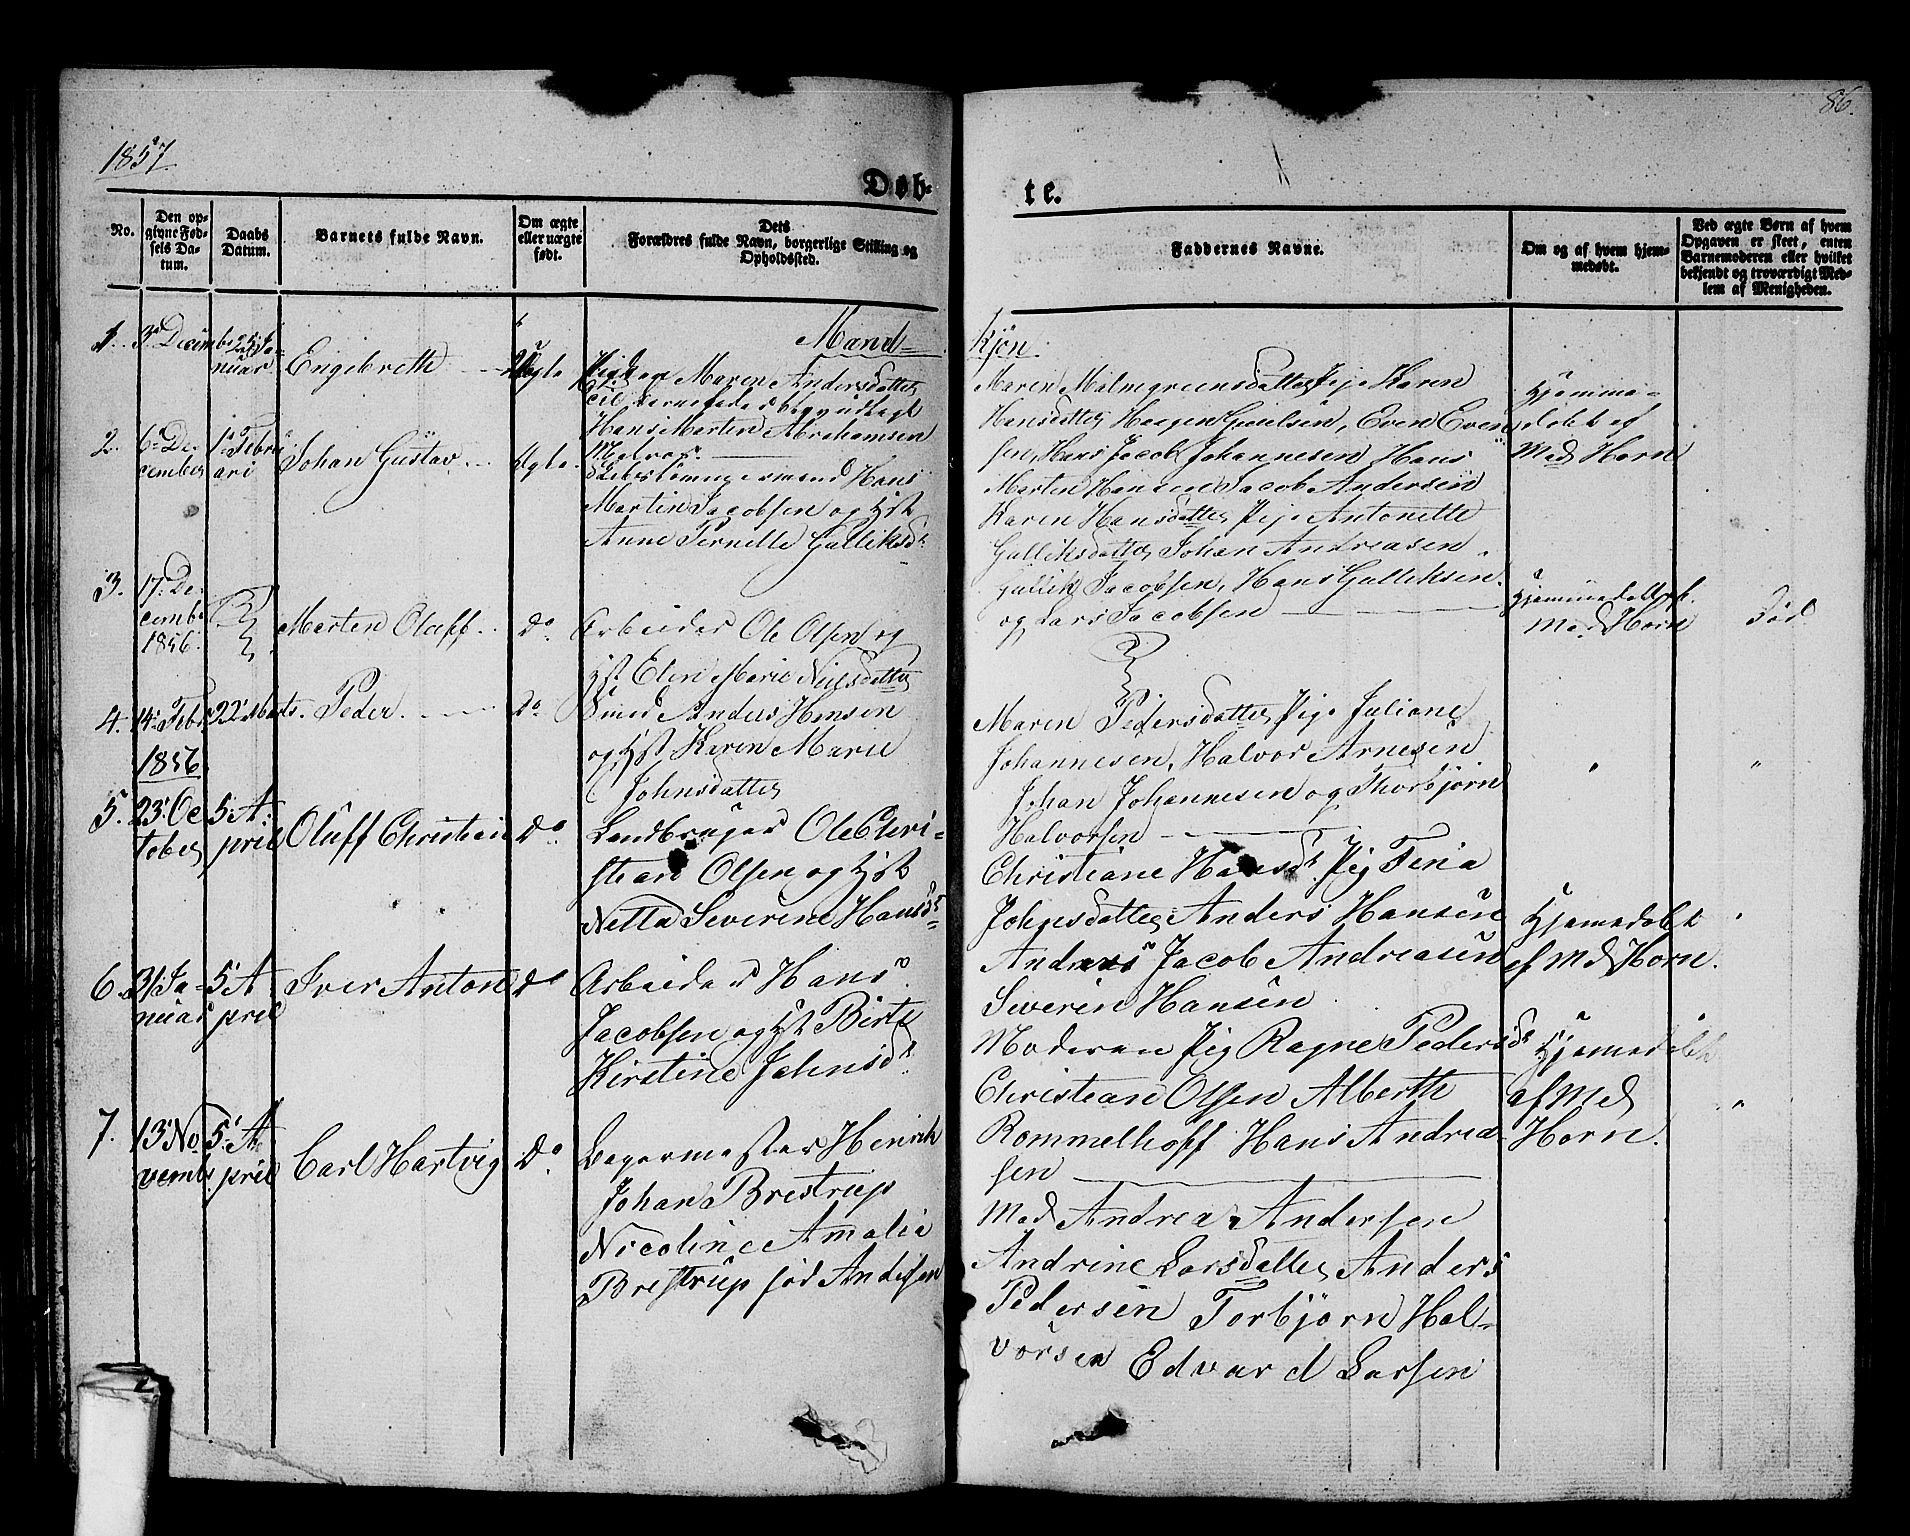 1857
86.
Døb-
te.
No.
Den op-
givne Fød-
sels Da-
tum.
Daabs
Datum.
Barnets fulde Navn.
Om ægte
eller uægte
født.
Dets
Forældres fulde Navn, borgerlige Stilling og
Opholdssted.
Faddernes Navne.
Om og af hvem hjem-
medøbt.
Ved ægte Børn af hvem
Opgaven er skeet, enten
Barnemoderen eller hvilket
bekjendt og troværdigt Med-
lem af Menigheden.
Mand-
kjön.
1.
3' Decemb
25 Ja-
nuar
Engebreth
Maren Andersdatter
Hans Martin Abrahamsen
Matros.
Maren Malmgreensdatter Pige Karen
Hansdatter Haagen Gusielsen, Even Even
sen, Hans Jacob Johannesen Hans
Hjemme-
döbt af
Mad Horn
2.
6' De-
cember
1' Febru
ari
Johan Gustav
Ægte
Hans
Martin Jacobsen og Hst
Anne Pernelle Gulliksd.
Marten Hansen Jacob Andersen
Karen Hansdatter Pige Antonette
Gulliksdatter Johan Andreasen
gullik Jacobsen, Hans Gulliksen
og Lars Jacobsen
3.
17' De-
cember
1856.
Marten Oluff
Do
Arbeider Ole Olsen og
Hst Elen Marie Nielsdatter
Hjemmedøbt af
Mad Horn
Död
4.
14' Febr
22' Marts.
Peder
Do
Smed Anders Hansen
og Hst Karen Marie
Johnsdatter
Maren Pedersdatter Pige Juliane
Johannesen, Halvor Arnesen
Johan Johannesen og Thorbjörn
Halvorsen
"
"
1856
5.
23' Oc
tober
5' A
pril
Oluff Christian
Do
Landbruger Ole Chri-
stean Olsen og Hst
Netta Severine Hansd.
Christiane Hansd. Pig Tena
Johnsdatter Anders Hansen
Andreas Jacob Andreasen
Severin Hansen
Hjemedöbt
af Md Horn.
6.
31' Ja-
nuar
5' A
pril
Iver Anton
Do
Arbeider Hans
Jacobsen og Hst Birte
Kirstine Johnsd.
Moderen Pig Ragne Pedersd.
Christean Olsen Alberth
Rommelhoff Hans Andrea
sen
Hjemedöbt
af Md
Horn.
"
7.
13' No
vemb.
5' A
pril
Carl Hartvig
Do
Bagermester Henrik
Johan Brestrup
Nicoline Amalia
Brestrup föd Andersen
Mad Andrea Andersen
Andrine Larsdatter Anders
Pedersen Torbjörn Hal-
vorsen Edvard Larsen